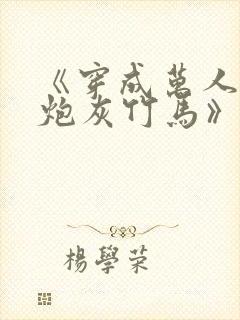 《穿成萬人
炮灰竹馬》
楊學榮